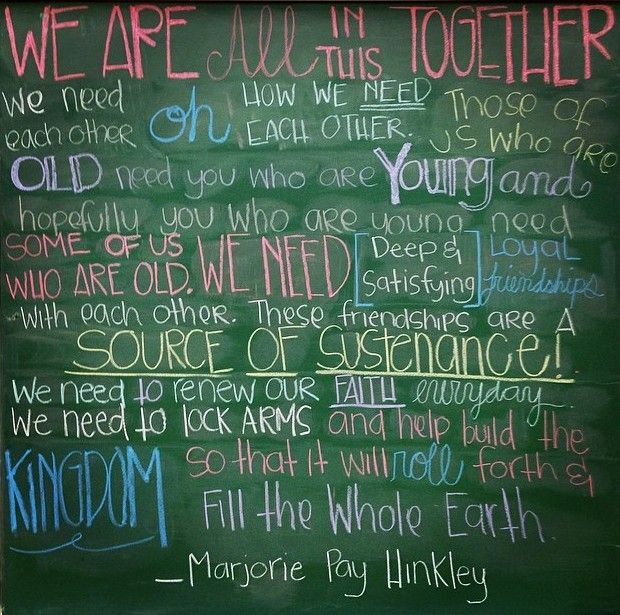 WE ARE All IN THIS TOGETHER
We need each other oh HOW WE NEED EACH OTHER. Those of us who are
OLD need you who are Young and
hopefully you who are young need
SOME OF US WHO ARE OLD. WE NEED [Deep & Satisfying] Loyal friendships
with each other. These friendships are A
SOURCE OF SUSTENANCE!
We need to renew our FAITH everyday.
We need to lock ARMS and help build the
KINGDOM so that it will roll forth &
Fill the Whole Earth.
—Marjorie Pay Hinkley